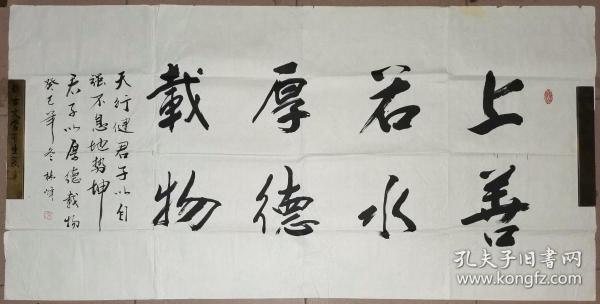 上善
若水
厚德
載物
天行健君子以自
强不息地势坤
君子以厚德載物
癸巳年冬林
孔夫子旧书网
www.kongfz.com